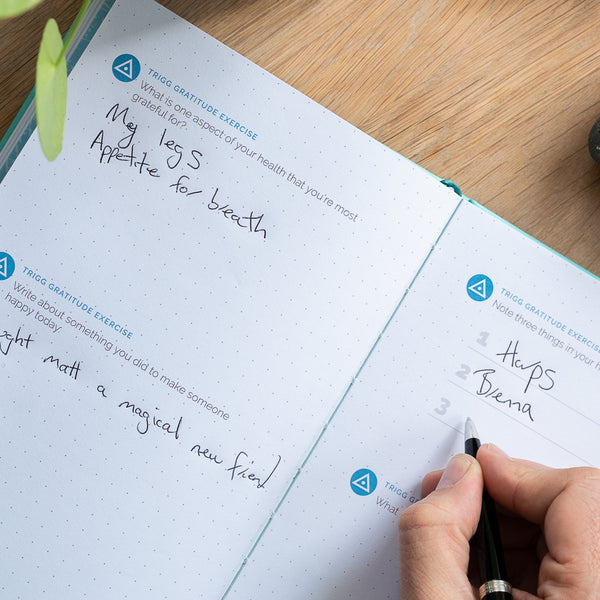 TRIGG GRATITUDE EXERCISE
What is one aspect of your health that you're most
grateful for?
My legs
Appetite for breath
TRIGG GRATITUDE EXERCISE
Write about something you did to make someone
happy today.
matt a magical new friend
TRIGG GRATITUDE EXERCISE
Note three things in your h
1 Harps
2
3
TRIGG
What